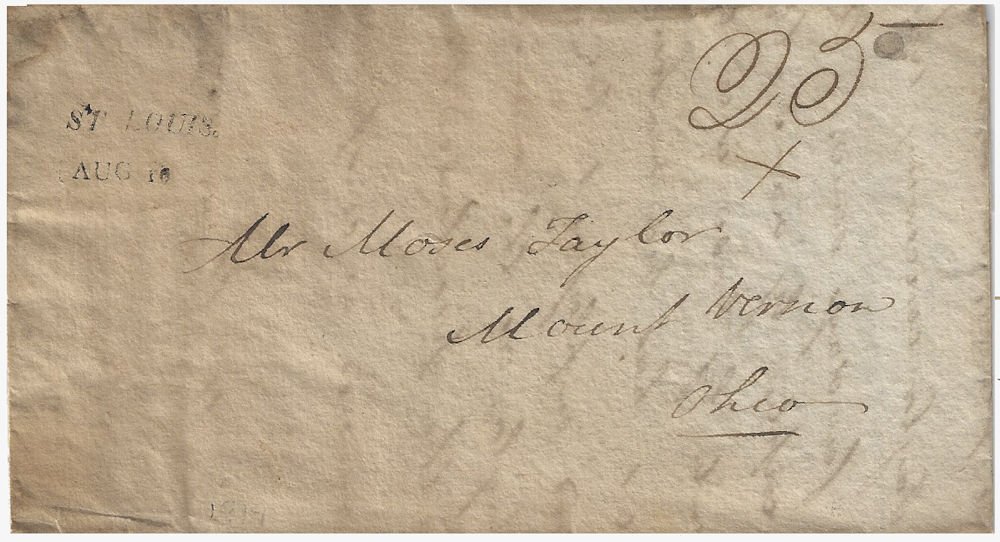 25
X
ST LOUIS.
AUG 16
Mr Moses Taylor
Mount Vernon
Ohio